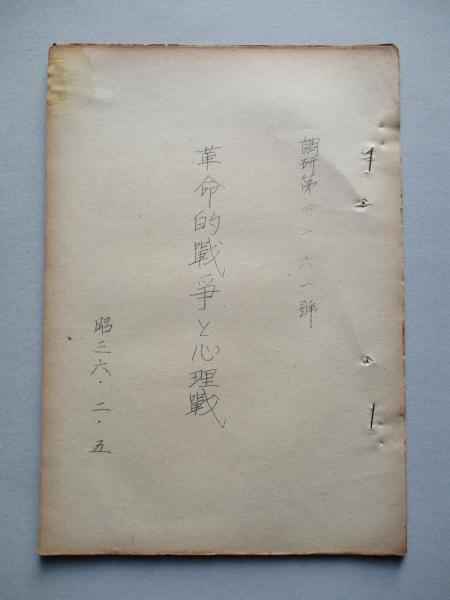 調研第四一六一號
革命的戰爭と心理戰
昭三六・二・五